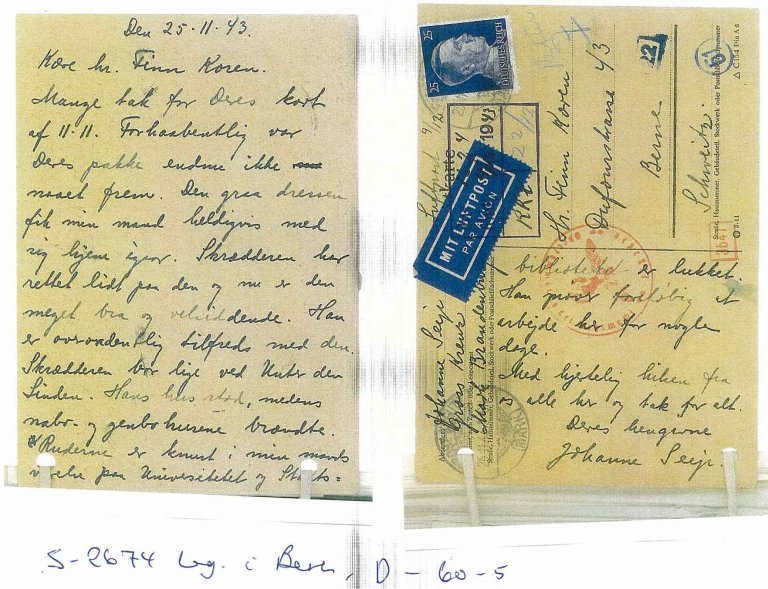 Den 25-11-43.
Kære hr. Finn Koren.
Mange tak for Deres kort
af 11-11. Forhaabentlig var
Deres pakke endnu ikke
naaet frem. Den graa dressen
fik min mand heldigvis med
sig hjem igaar. Skrædderen har
rettet lidt paa den og nu er den
meget bra og velsiddende. Han
er overordentlig tilfreds med den.
Skrædderen bor lige ved Unter den
Linden. Hans hus stod, medens
nabo- og genbohusene brændte.
Ruderne er knust i min mands
paa Universitetet og Stats=
25 25
DEUTSCHES REICH
Luftpost
MIT LUFTPOST
PAR AVION
1943
22
Hr. Finn Koren
Dufourstrasse 43
Berne
Schweitz
Straße, Hausnummer, Gebäudeteil, Stockwerk oder Postschließfachnummer
C 154 Din A 6
biblioteket er lukket.
Han prøver foreløbig at
arbejde her for nogle
dage.
Med hjertelig hilsen fra
alle her og tak for alt.
Deres hengivne
Johanne Seip.
Johanne Seip
Gross Kreuz
Mark Brandenburg
S-2674 Leg. i Bern, D-60-5